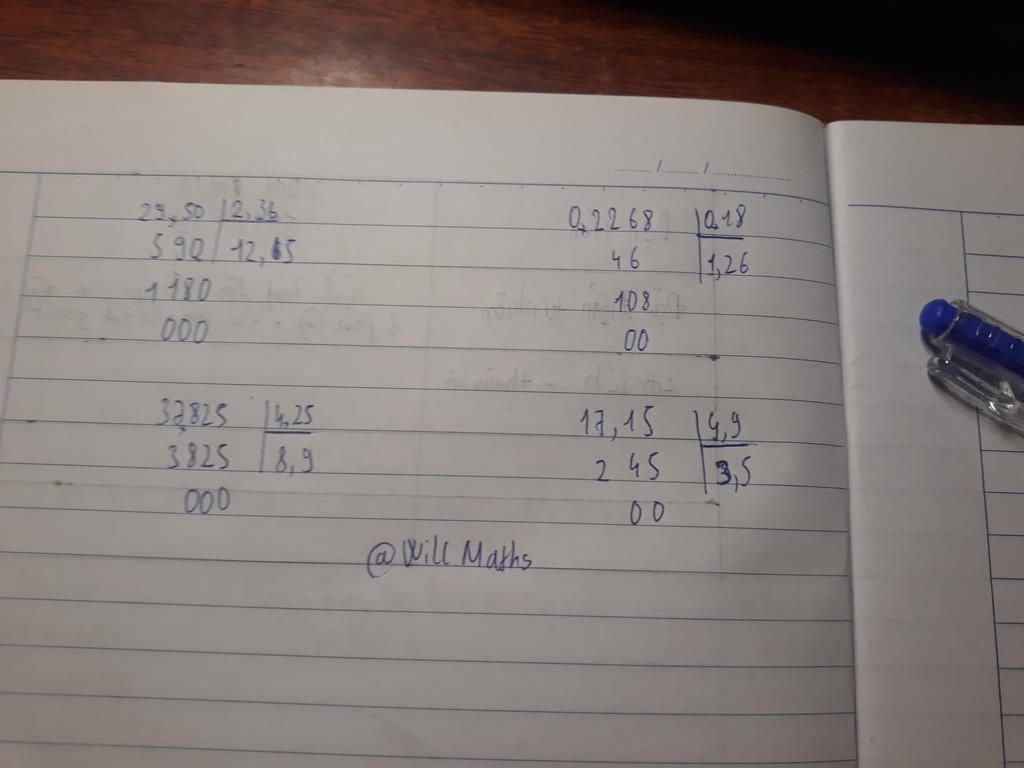 ...../...../............
29,50 2,36
590 12,5
1180
000
0,2268 0,18
46 1,26
108
00
37,825 4,25
3825 8,9
000
17,15 4,9
2 45 3,5
00
@Will Maths